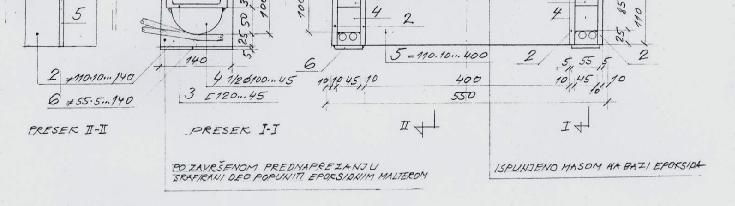 5
50
25
5
100
140
2 ≠110·10...140
6 ≠55·5...140
4 1/2 ⌀100...45
3 [120...45
PRESEK II-II
PRESEK I-I
100
4
2
6
5 -110·10...400
10 10 45 10
400
550
4
2
2
85
25
110
5 55 5
10 45 10
10
II
I
PO ZAVRŠENOM PREDNAPREZANJU
ŠRAFIRANI DEO POPUNITI EPOKSIDNIM MALTEROM
ISPUNJENO MASOM NA BAZI EPOKSIDA